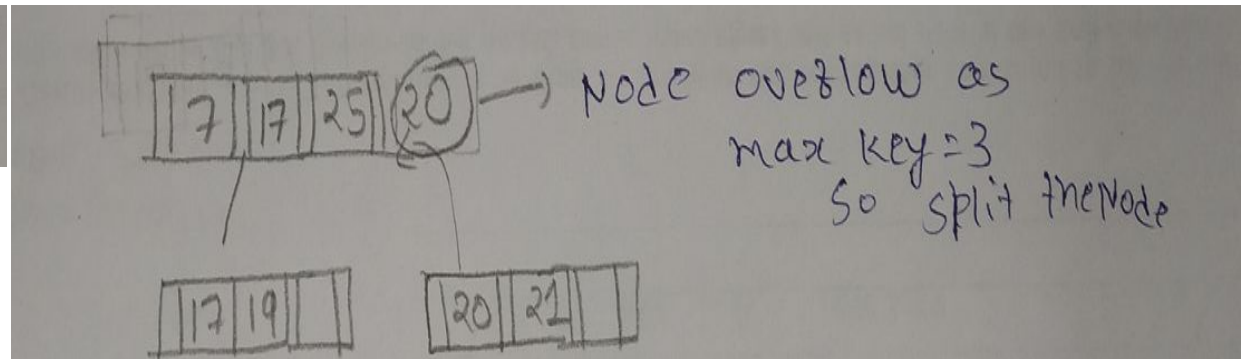 7 17 25 20 → Node overflow as
max key=3
so split the Node
17 19 20 21